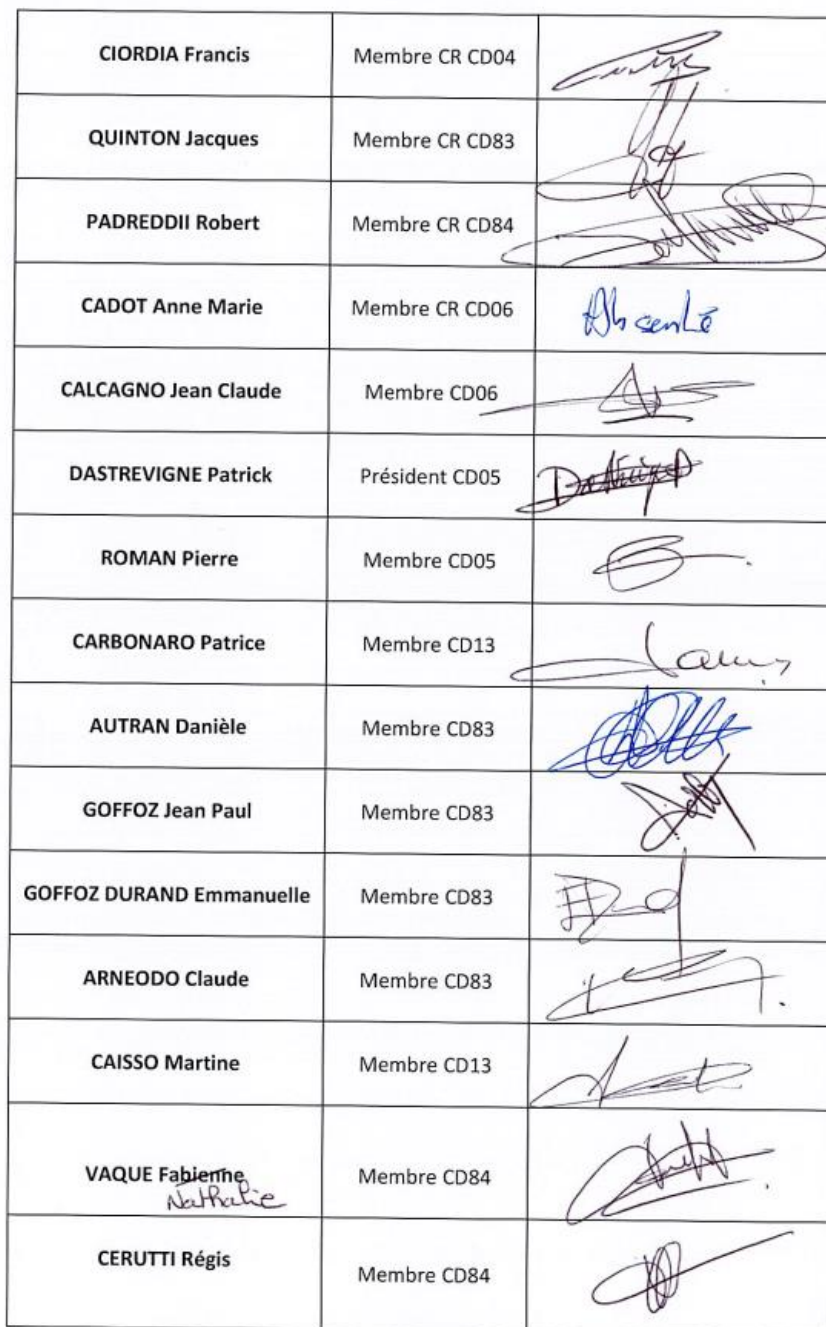 CIORDIA Francis Membre CR CD04
QUINTON Jacques Membre CR CD83
PADREDDII Robert Membre CR CD84
CADOT Anne Marie Membre CR CD06 Absente
CALCAGNO Jean Claude Membre CD06
DASTREVIGNE Patrick Président CD05
ROMAN Pierre Membre CD05
CARBONARO Patrice Membre CD13
AUTRAN Danièle Membre CD83
GOFFOZ Jean Paul Membre CD83
GOFFOZ DURAND Emmanuelle Membre CD83
ARNEODO Claude Membre CD83
CAISSO Martine Membre CD13
VAQUE Fabienne Membre CD84
Nathalie
CERUTTI Régis Membre CD84